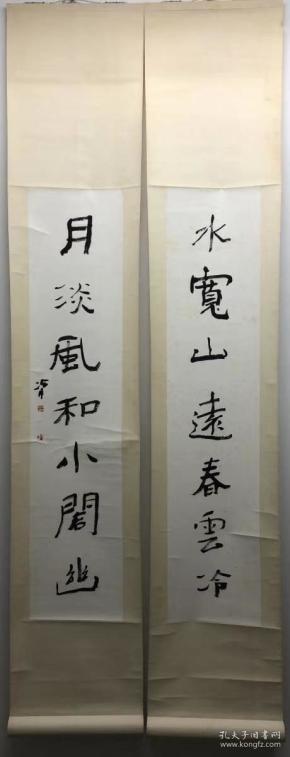 水寬山遠春雲冷
月淡風和小閣幽
孔夫子旧書网
www.kongfz.com